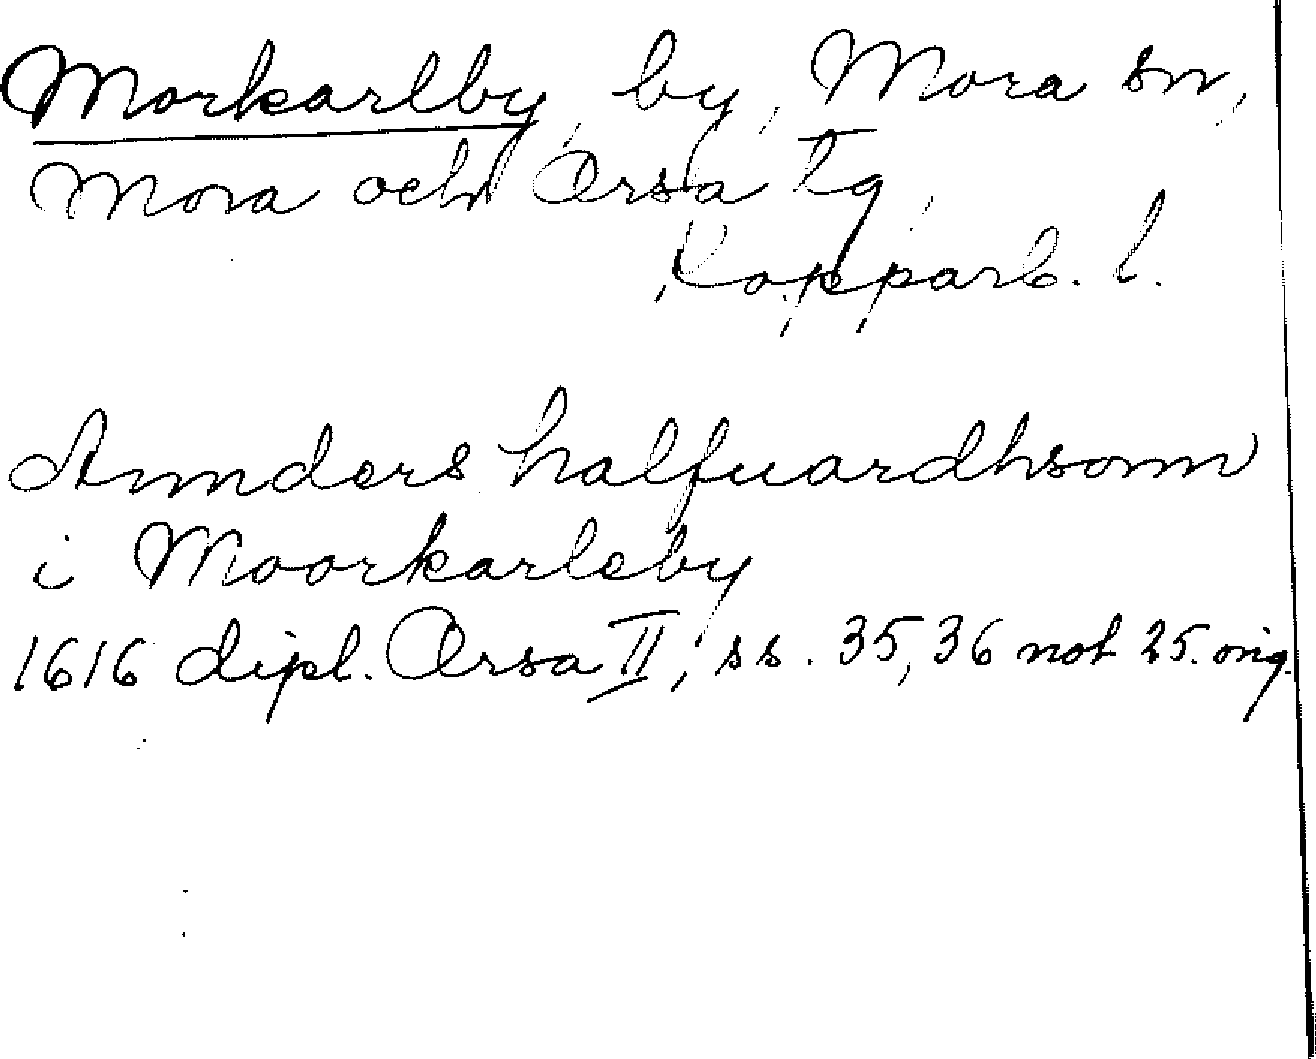 Morkarlby, by, Mora sn,
Mora och Orsa tg,
Kopparb. l.
Annders halfuardhsonn
i Moorkarleby
1616 dipl. Orsa II, ss. 35, 36 not 25. orig.